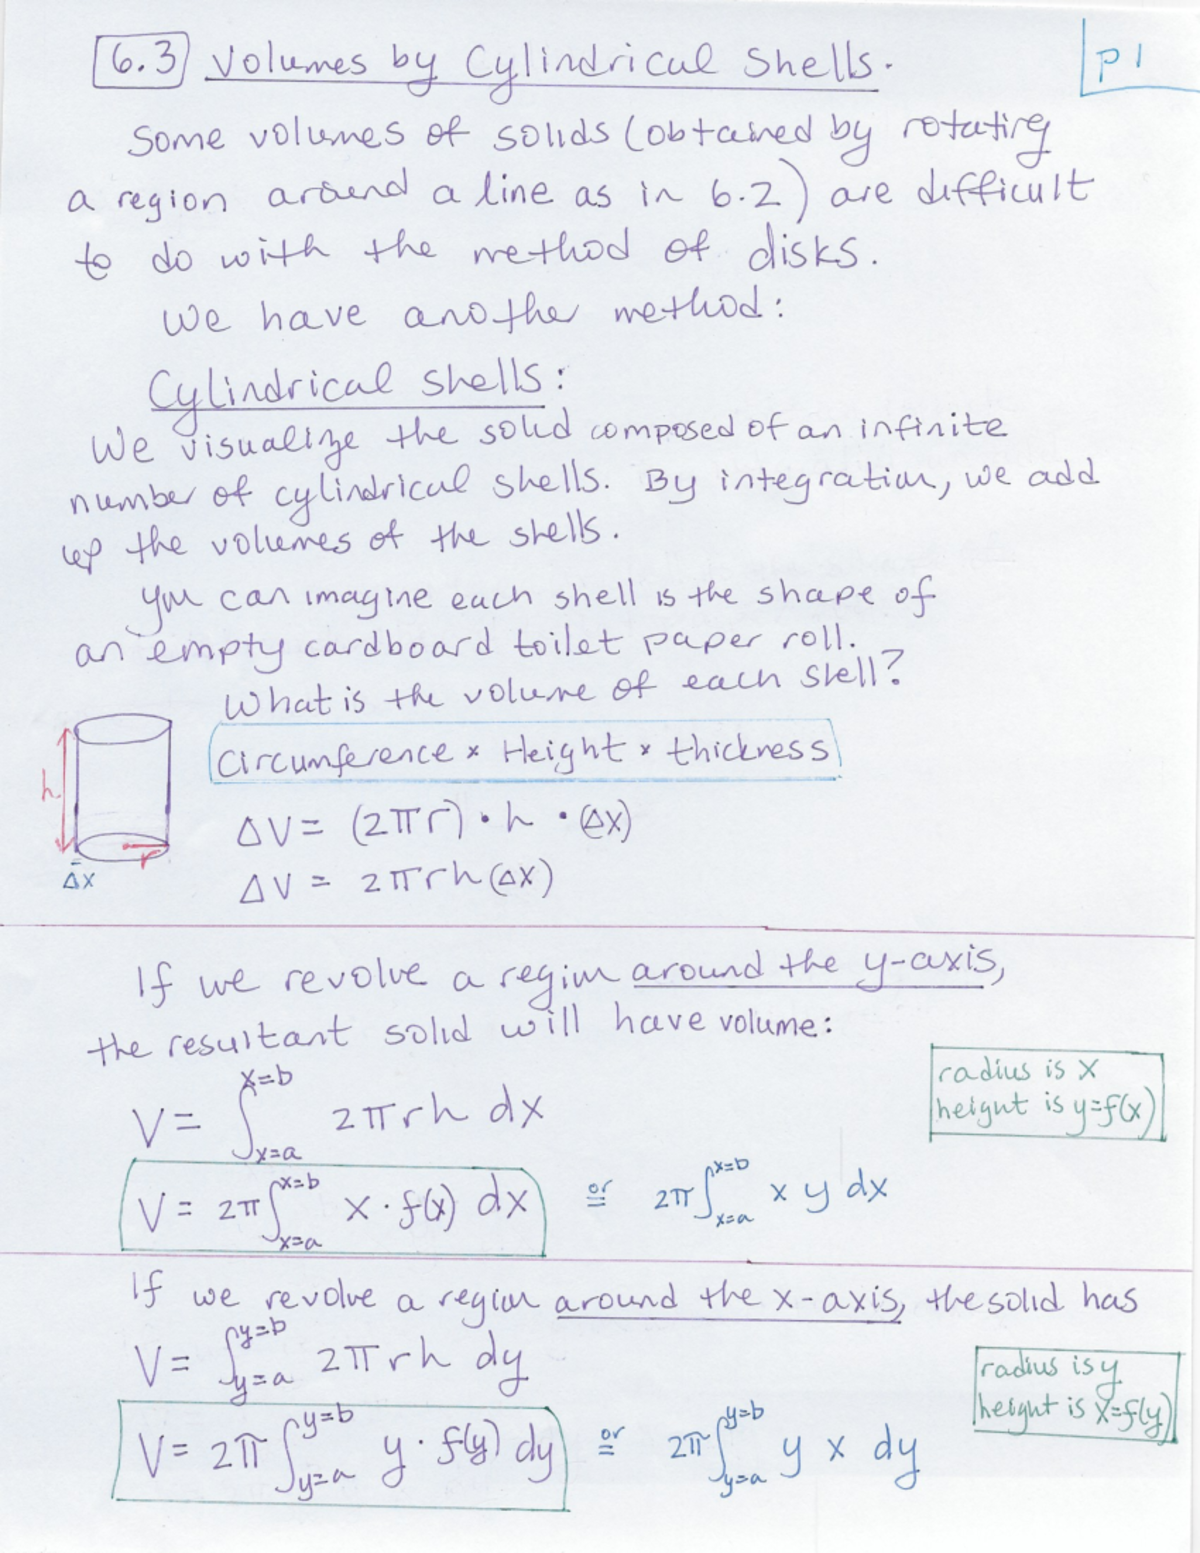 6.3 Volumes by Cylindrical Shells.
p 1
Some volumes of solids (obtained by rotating
a region around a line as in 6.2) are difficult
to do with the method of disks.
We have another method:
Cylindrical shells:
We visualize the solid composed of an infinite
number of cylindrical shells. By integration, we add
up the volumes of the shells.
You can imagine each shell is the shape of
an empty cardboard toilet paper roll.
What is the volume of each shell?
Circumference × Height × thickness
h
r
Δx
ΔV = (2πr) · h · (Δx)
ΔV = 2πrh(Δx)
If we revolve a region around the y-axis,
the resultant solid will have volume:
radius is x
height is y=f(x)
V = ∫_{x=a}^{x=b} 2πrh dx
V = 2π ∫_{x=a}^{x=b} x · f(x) dx or 2π ∫_{x=a}^{x=b} x y dx
If we revolve a region around the x-axis, the solid has
V = ∫_{y=a}^{y=b} 2πrh dy
radius is y
height is x=f(y)
V = 2π ∫_{y=a}^{y=b} y · f(y) dy or 2π ∫_{y=a}^{y=b} y x dy